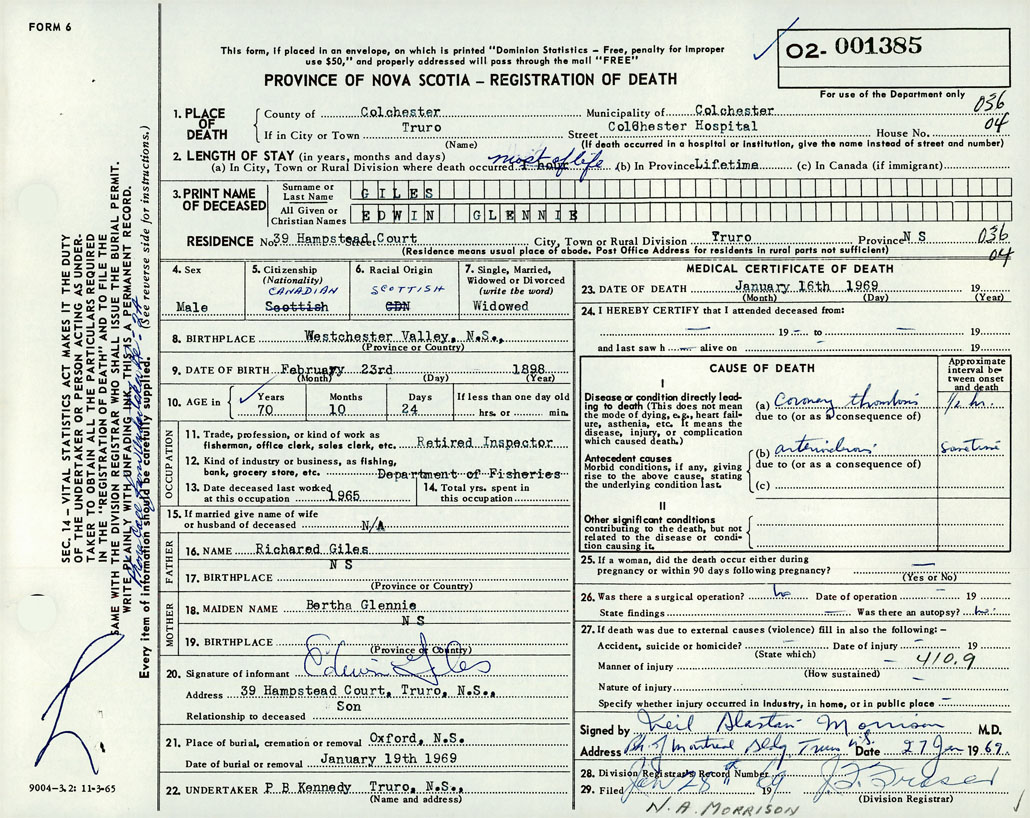 FORM 6
This form, if placed in an envelope, on which is printed "Dominion Statistics – Free, penalty for improper
use $50," and properly addressed will pass through the mail "FREE"
PROVINCE OF NOVA SCOTIA – REGISTRATION OF DEATH
O2- 001385
For use of the Department only
036
04
1. PLACE OF DEATH
County of Colchester Municipality of Colchester
If in City or Town Truro Street Colchester Hospital House No.
(Name) (If death occurred in a hospital or institution, give the name instead of street and number)
2. LENGTH OF STAY (in years, months and days)
(a) In City, Town or Rural Division where death occurred most of life 1 hour (b) In Province Lifetime (c) In Canada (if immigrant)
3. PRINT NAME OF DECEASED
Surname or Last Name GILES
All Given or Christian Names EDWIN GLENNIE
RESIDENCE No. 39 Hampstead Court Street City, Town or Rural Division Truro Province N S
036
04
(Residence means usual place of abode. Post Office Address for residents in rural parts not sufficient)
4. Sex
Male
5. Citizenship
(Nationality)
CANADIAN
Scottish
6. Racial Origin
SCOTTISH
CDN
7. Single, Married,
Widowed or Divorced
(write the word)
Widowed
8. BIRTHPLACE Westchester Valley, N.S.,
(Province or Country)
9. DATE OF BIRTH February 23rd 1898
(Month) (Day) (Year)
10. AGE in
Years Months Days If less than one day old
70 10 24 hrs. or min.
OCCUPATION
11. Trade, profession, or kind of work as
fisherman, office clerk, sales clerk, etc. Retired Inspector
12. Kind of industry or business, as fishing,
bank, grocery store, etc. Department of Fisheries
13. Date deceased last worked
at this occupation 1965
14. Total yrs. spent in
this occupation
15. If married give name of wife
or husband of deceased N/A
FATHER
16. NAME Richared Giles
N S
17. BIRTHPLACE
(Province or Country)
MOTHER
18. MAIDEN NAME Bertha Glennie
N S
19. BIRTHPLACE
(Province or Country)
20. Signature of informant Edwin Giles
Address 39 Hampstead Court, Truro, N.S.,
Son
Relationship to deceased
21. Place of burial, cremation or removal Oxford, N.S.
Date of burial or removal January 19th 1969
22. UNDERTAKER P B Kennedy Truro, N.S.,
(Name and address)
MEDICAL CERTIFICATE OF DEATH
23. DATE OF DEATH January 16th 1969 19
(Month) (Day) (Year)
24. I HEREBY CERTIFY that I attended deceased from:
— 19 – to — 19
and last saw h — alive on — 19
CAUSE OF DEATH
Approximate interval between onset and death
I
Disease or condition directly leading to death (This does not mean the mode of dying, e.g., heart failure, asthenia, etc. It means the disease, injury, or complication which caused death.)
(a) Coronary thrombosis ½ hr.
due to (or as a consequence of)
Antecedent causes
Morbid conditions, if any, giving rise to the above cause, stating the underlying condition last.
(b) arteriosclerosis sometime
due to (or as a consequence of)
(c)
II
Other significant conditions
contributing to the death, but not related to the disease or condition causing it.
25. If a woman, did the death occur either during
pregnancy or within 90 days following pregnancy? —
(Yes or No)
26. Was there a surgical operation? no Date of operation – 19
State findings — Was there an autopsy? no
27. If death was due to external causes (violence) fill in also the following: –
Accident, suicide or homicide? – Date of injury – 19
(State which)
Manner of injury – 410.9
(How sustained)
Nature of injury –
Specify whether injury occurred in industry, in home, or in public place –
Signed by Neil Alastair Morrison M.D.
Address Bk of Montreal Bldg Truro N.S. Date 27 Jan 1969.
28. Division Registrar's Record Number
29. Filed Jan 28th 1969 J. F. Fraser
(Division Registrar)
N. A. MORRISON
SEC. 14 – VITAL STATISTICS ACT MAKES IT THE DUTY
OF THE UNDERTAKER OR PERSON ACTING AS UNDER-
TAKER TO OBTAIN ALL THE PARTICULARS REQUIRED
IN THE "REGISTRATION OF DEATH" AND TO FILE THE
SAME WITH THE DIVISION REGISTRAR WHO SHALL ISSUE THE BURIAL PERMIT.
WRITE PLAINLY WITH UNFADING INK, THIS IS A PERMANENT RECORD.
Every item of information should be carefully supplied. (See reverse side for instructions.)
9004-3.2: 11-3-65